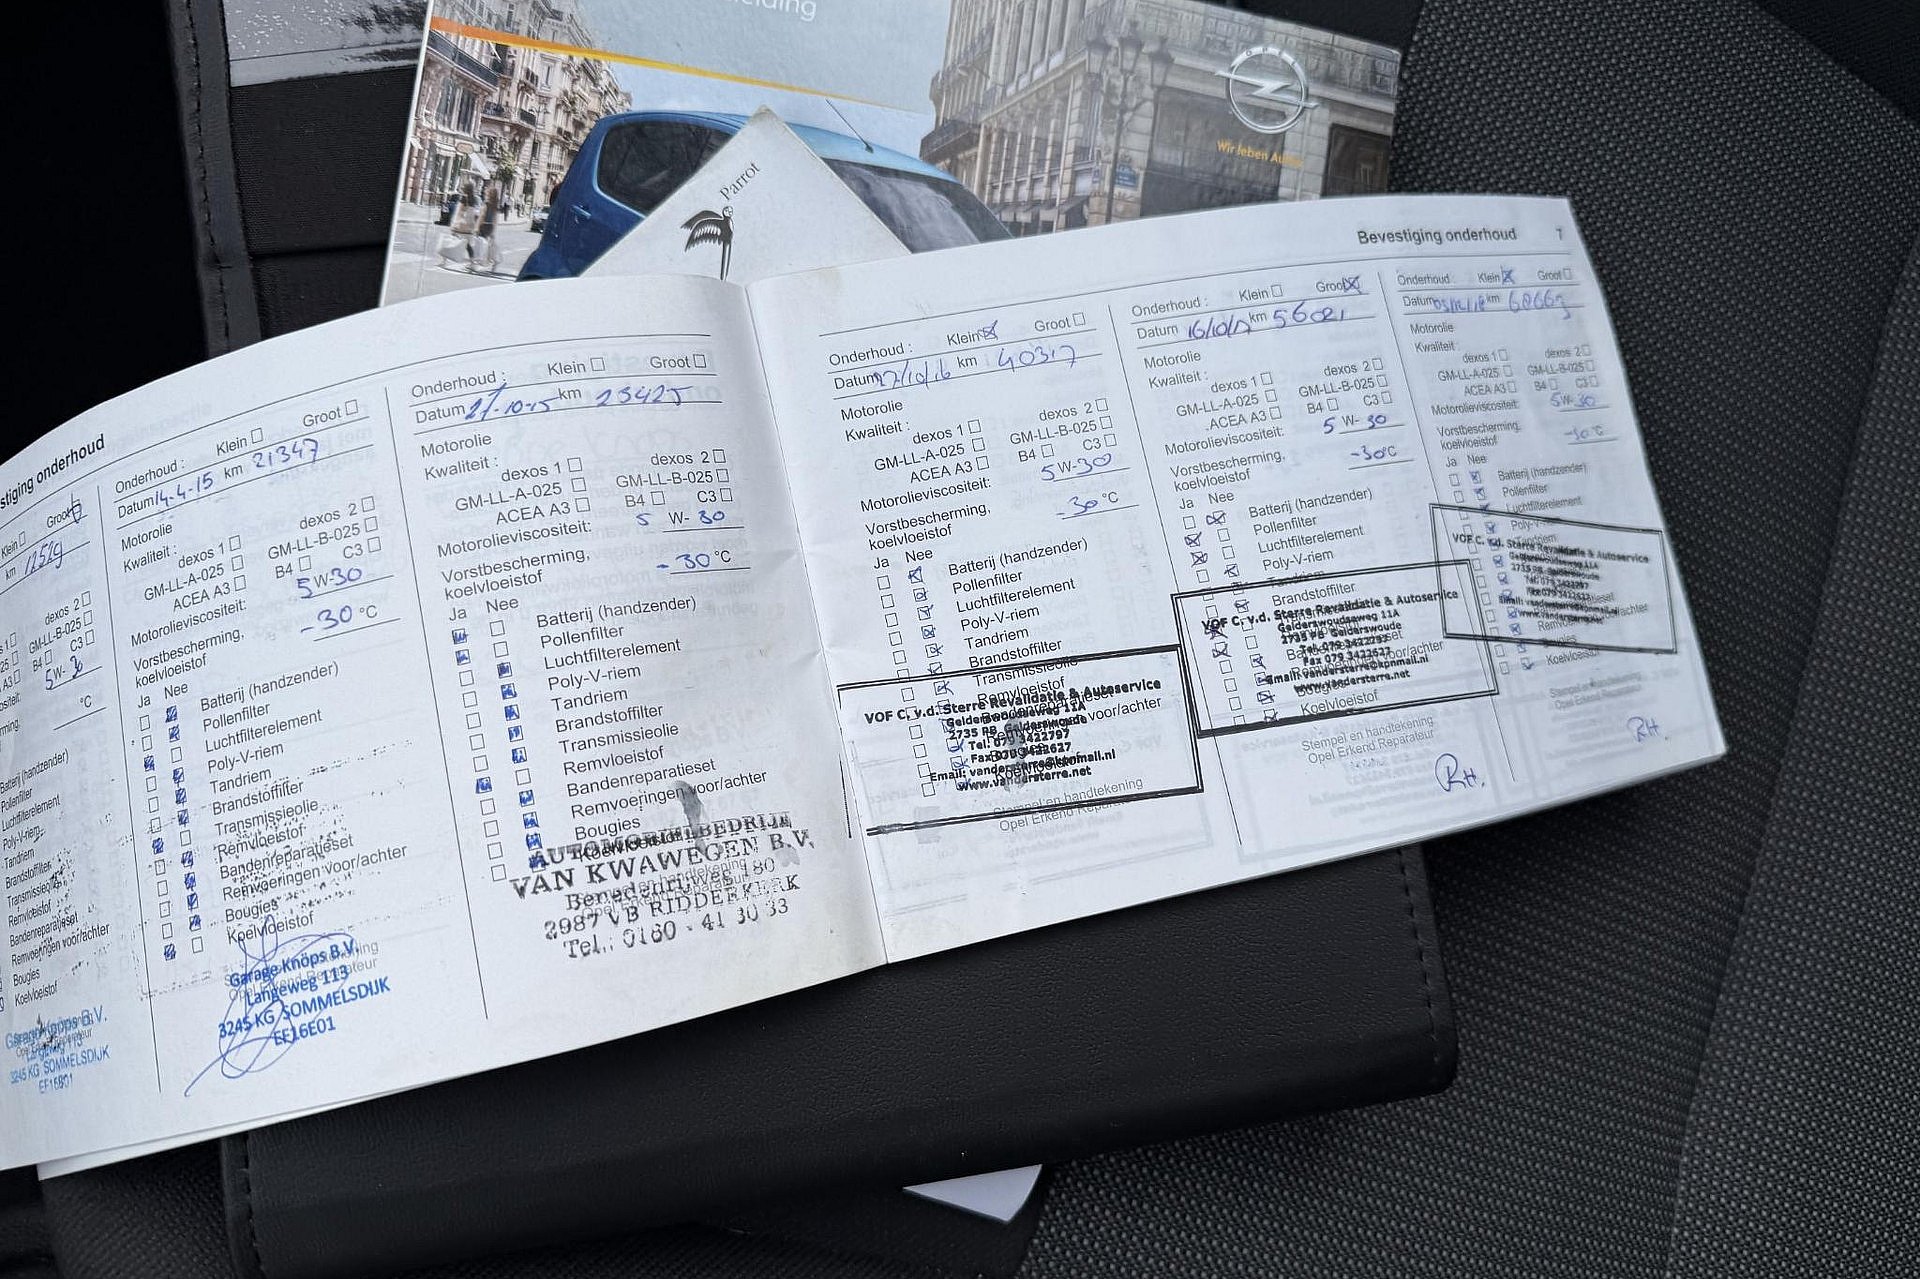 OPEL
Wir leben Autos
Parrot
stiging onderhoud
Klein Groot
km 12529
dexos 2
GM-LL-B-025
B4 C3
5W-30
°C
Batterij (handzender)
Pollenfilter
Luchtfilterelement
Poly-V-riem
Tandriem
Brandstoffilter
Transmissieolie
Remvloeistof
Bandenreparatieset
Remvoeringen voor/achter
Bougies
Koelvloeistof
Garage Knöps B.V.
3245 KG SOMMELSDIJK
Onderhoud : Klein Groot
Datum 14-4-15 km 21347
Motorolie
Kwaliteit : dexos 1 dexos 2
GM-LL-A-025 GM-LL-B-025
ACEA A3 B4 C3
Motorolieviscositeit: 5W-30
Vorstbescherming,
koelvloeistof -30 °C
Ja Nee
Batterij (handzender)
Pollenfilter
Luchtfilterelement
Poly-V-riem
Tandriem
Brandstoffilter
Transmissieolie
Remvloeistof
Bandenreparatieset
Remvoeringen voor/achter
Bougies
Koelvloeistof
Garage Knöps B.V.
Langeweg 113
3245 KG SOMMELSDIJK
EF16E01
Onderhoud : Klein Groot
Datum 21-10-15 km 23425
Motorolie
Kwaliteit : dexos 1 dexos 2
GM-LL-A-025 GM-LL-B-025
ACEA A3 B4 C3
Motorolieviscositeit: 5 W-30
Vorstbescherming,
koelvloeistof -30 °C
Ja Nee
Batterij (handzender)
Pollenfilter
Luchtfilterelement
Poly-V-riem
Tandriem
Brandstoffilter
Transmissieolie
Remvloeistof
Bandenreparatieset
Remvoeringen voor/achter
Bougies
Koelvloeistof
AUTOMOBIELBEDRIJF
VAN KWAWEGEN B.V.
Benedenrijweg 180
2987 VB RIDDERKERK
Tel.: 0180 - 41 30 33
Bevestiging onderhoud 7
Onderhoud : Klein Groot
Datum 27/10/16 km 40317
Motorolie
Kwaliteit : dexos 1 dexos 2
GM-LL-A-025 GM-LL-B-025
ACEA A3 B4 C3
Motorolieviscositeit: 5W-30
Vorstbescherming,
koelvloeistof -30 °C
Ja Nee
Batterij (handzender)
Pollenfilter
Luchtfilterelement
Poly-V-riem
Tandriem
Brandstoffilter
Transmissieolie
Remvloeistof
VOF C. v.d. Sterre Revalidatie & Autoservice
Gelderswoudseweg 11A
2735 PB Gelderswoude
Tel: 079 3422797
Fax 079 3422627
Email: vandersterre@kpnmail.nl
www.vandersterre.net
Stempel en handtekening
Opel Erkend Reparateur
Onderhoud : Klein Groot
Datum 16/10/17 km 56021
Motorolie
Kwaliteit : dexos 1 dexos 2
GM-LL-A-025 GM-LL-B-025
ACEA A3 B4 C3
Motorolieviscositeit: 5 W-30
Vorstbescherming,
koelvloeistof -30°C
Ja Nee
Batterij (handzender)
Pollenfilter
Luchtfilterelement
Poly-V-riem
Tandriem
Brandstoffilter
VOF C. v.d. Sterre Revalidatie & Autoservice
Gelderswoudseweg 11A
2735 PB Gelderswoude
Tel: 079 3422797
Fax 079 3422627
Email: vandersterre@kpnmail.nl
www.vandersterre.net
Koelvloeistof
Stempel en handtekening
Opel Erkend Reparateur
RH.
Onderhoud : Klein Groot
Datum km
Motorolie
Kwaliteit : dexos 1 dexos 2
GM-LL-A-025 GM-LL-B-025
ACEA A3 B4 C3
Motorolieviscositeit: 5W-30
Vorstbescherming,
koelvloeistof -30°C
Ja Nee
Batterij (handzender)
Pollenfilter
Luchtfilterelement
Poly-V-riem
Tandriem
VOF C. v.d. Sterre Revalidatie & Autoservice
Gelderswoudseweg 11A
2735 PB Gelderswoude
Tel: 079 3422797
Fax 079 3422627
Email: vandersterre@kpnmail.nl
www.vandersterre.net
Koelvloeistof
Stempel en handtekening
Opel Erkend Reparateur
RH.